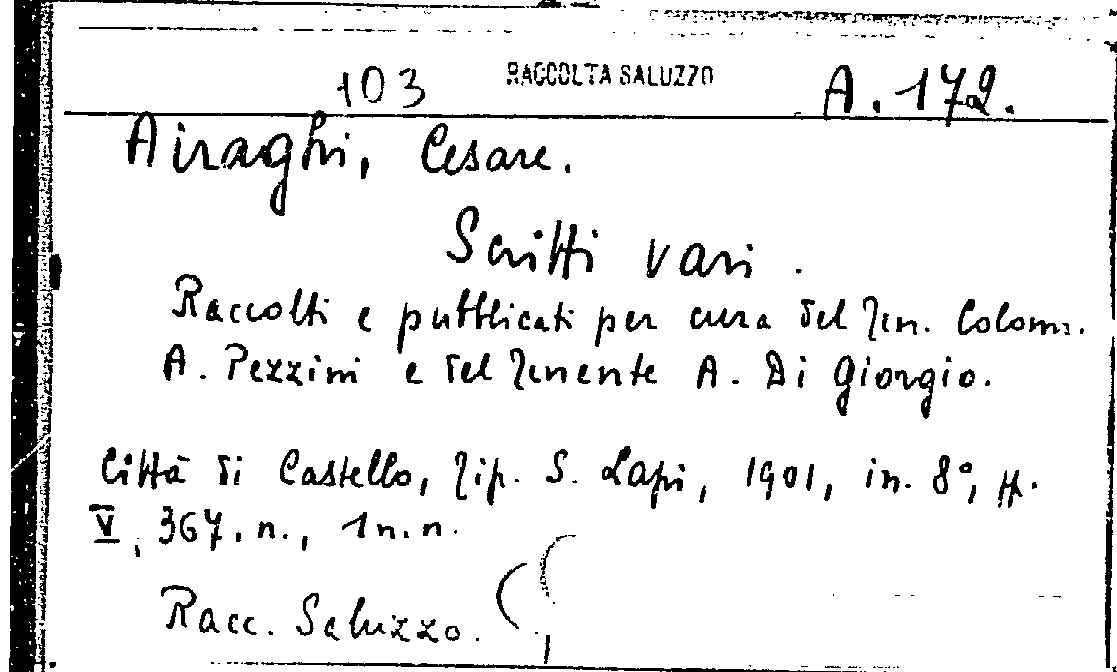 103 RACCOLTA SALUZZO A. 172.
Airaghi, Cesare.
Scritti vari.
Raccolti e pubblicati per cura del Ten. Colonn.
A. Pezzini e del Tenente A. Di Giorgio.
Città di Castello, Tip. S. Lapi, 1901, in. 8°, pp.
V, 367. n., 1 n. n.
Racc. Saluzzo.